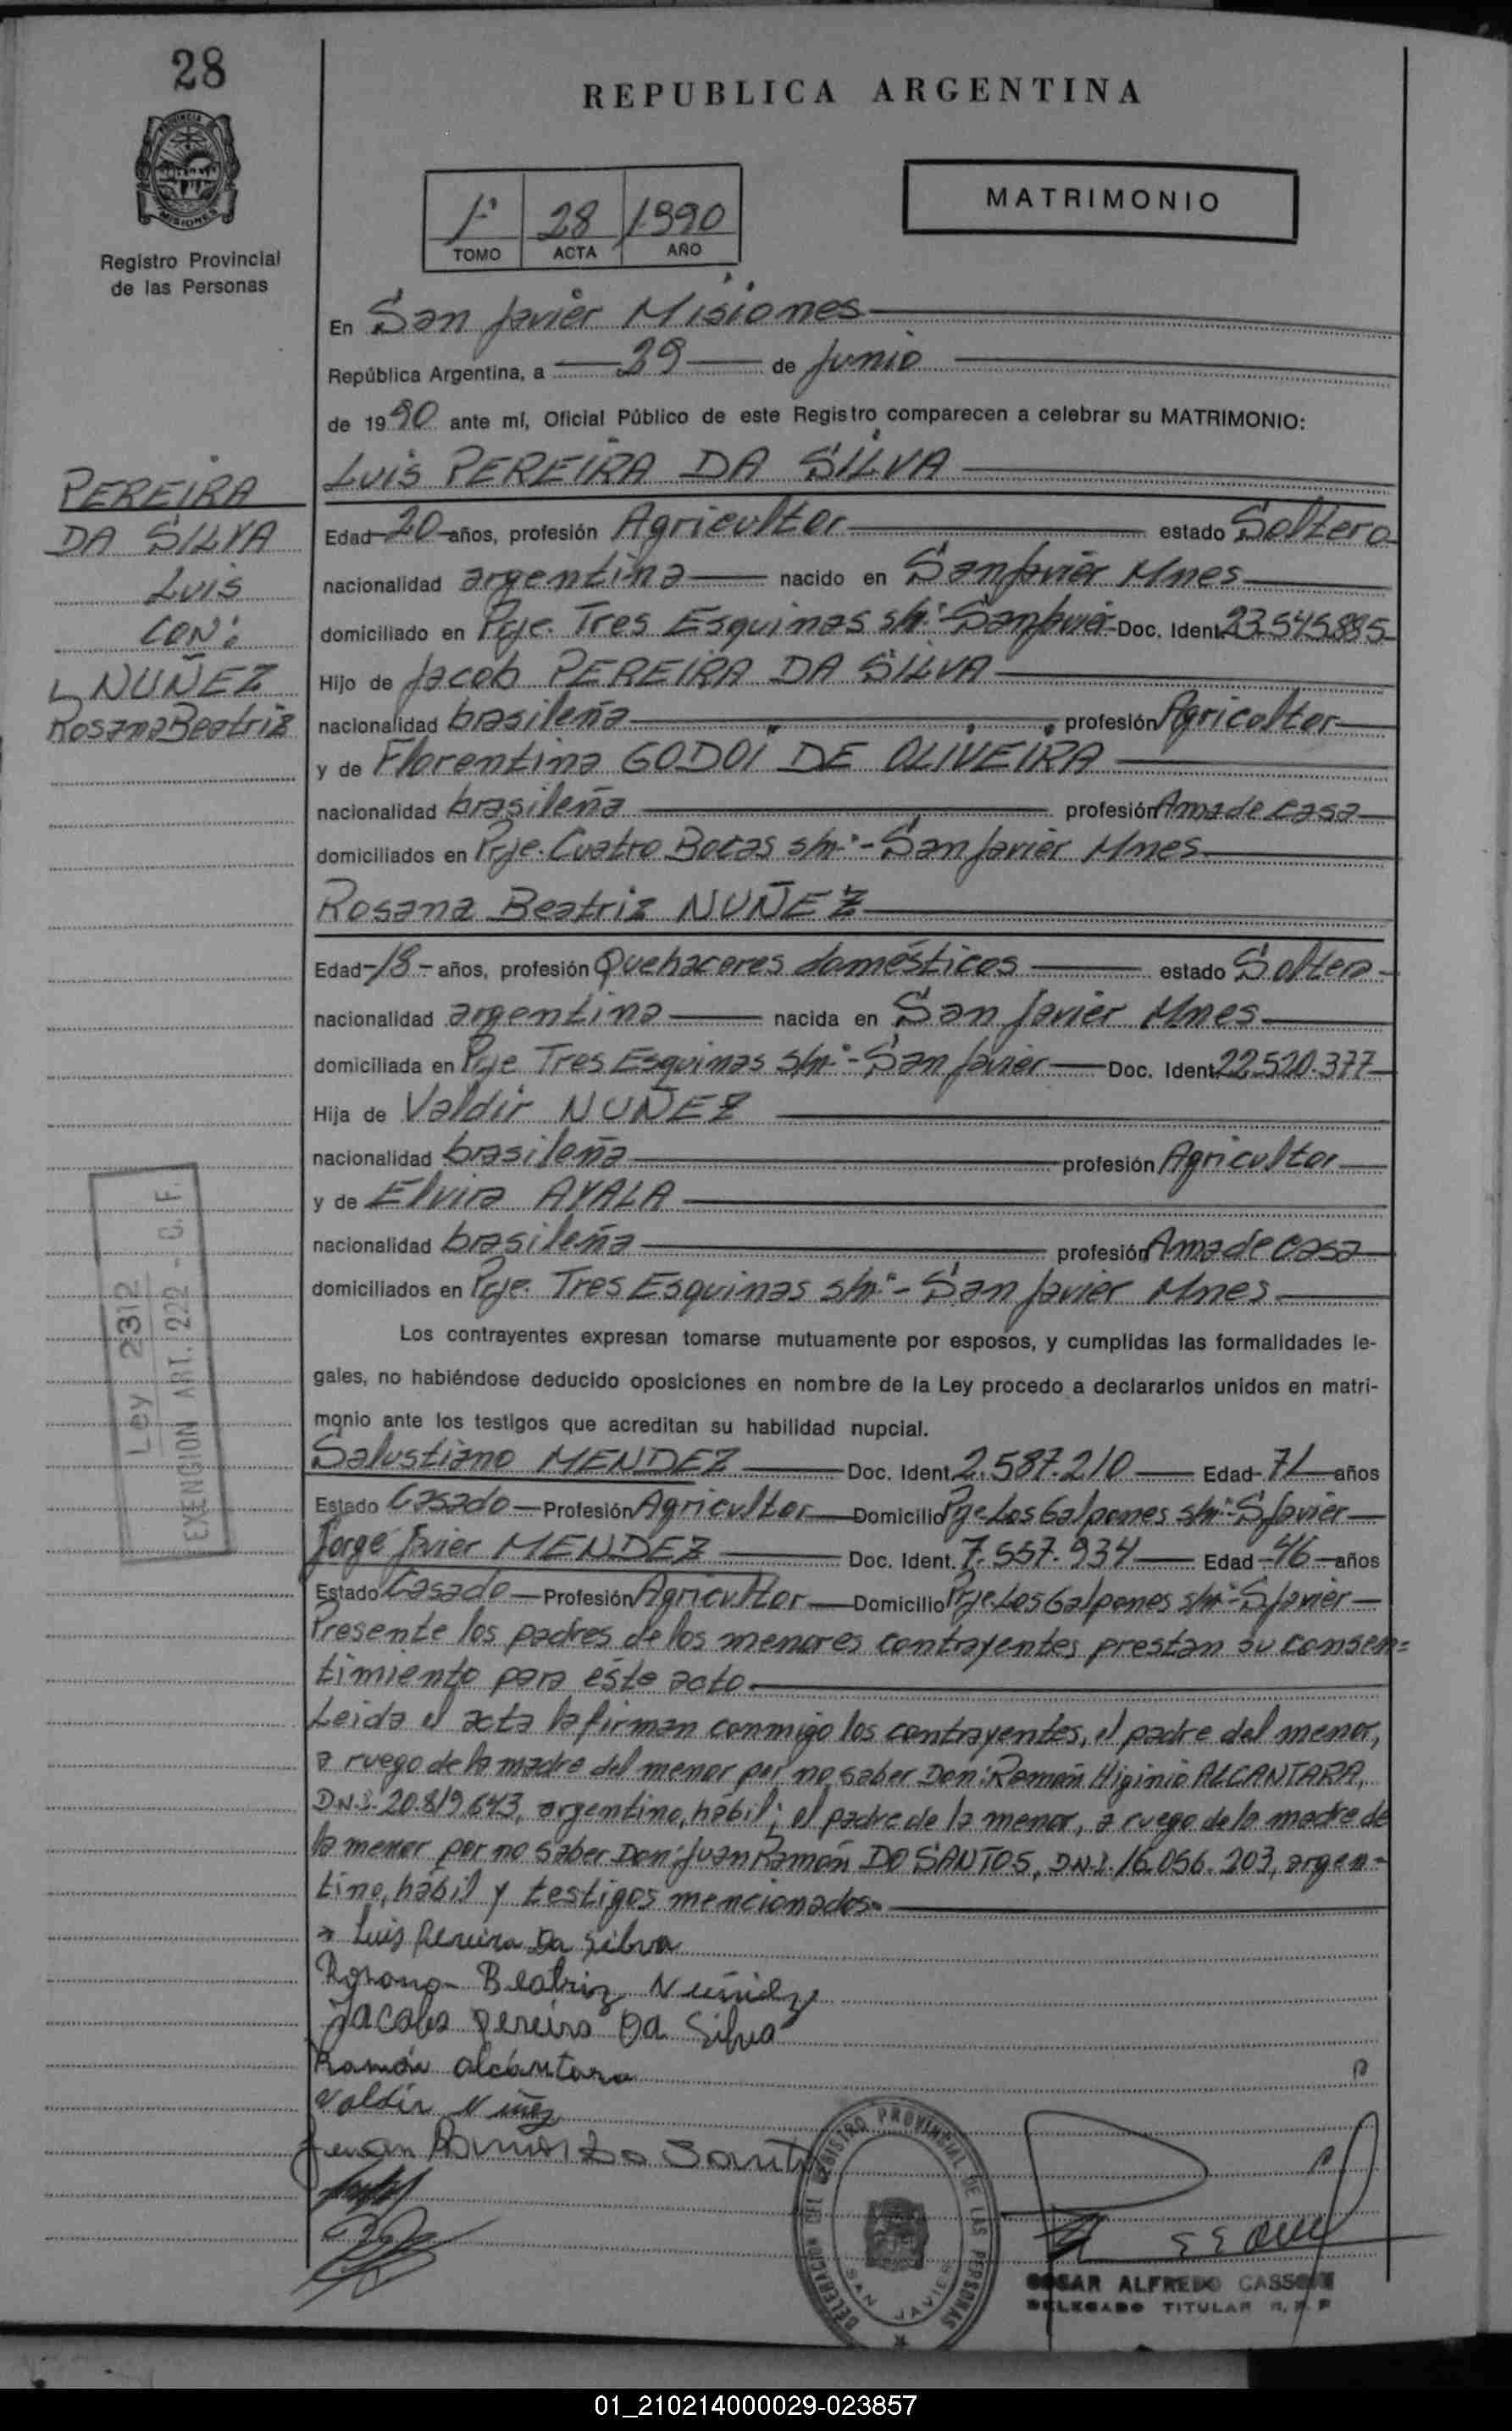 28
REPUBLICA ARGENTINA
PROVINCIA
MISIONES
Registro Provincial
de las Personas
1º 28 1990
TOMO ACTA AÑO
MATRIMONIO
En San Javier Misiones
República Argentina, a 29 de Junio
de 1990 ante mí, Oficial Público de este Registro comparecen a celebrar su MATRIMONIO:
Luis PEREIRA DA SILVA
PEREIRA
DA SILVA
Luis
CON:
NUÑEZ
Rosana Beatriz
Edad 20 años, profesión Agricultor estado Soltero
nacionalidad argentina nacido en San Javier Mnes
domiciliado en Pje. Tres Esquinas s/nº - San Javier Doc. Ident. 23.545.885
Hijo de Jacob PEREIRA DA SILVA
nacionalidad brasileña profesión Agricultor
y de Florentina GODOI DE OLIVEIRA
nacionalidad brasileña profesión Ama de casa
domiciliados en Pje. Cuatro Bocas s/nº - San Javier Mnes
Rosana Beatriz NUÑEZ
Edad 18 años, profesión Quehaceres domésticos estado Soltera
nacionalidad argentina nacida en San Javier Mnes
domiciliada en Pje Tres Esquinas s/nº - San Javier Doc. Ident. 22.520.377
Hija de Valdir NUÑEZ
nacionalidad brasileña profesión Agricultor
y de Elvira AYALA
nacionalidad brasileña profesión Ama de casa
domiciliados en Pje. Tres Esquinas s/nº - San Javier Mnes
Ley 2312
EXENCION ART. 222 - C. F.
Los contrayentes expresan tomarse mutuamente por esposos, y cumplidas las formalidades le-
gales, no habiéndose deducido oposiciones en nombre de la Ley procedo a declararlos unidos en matri-
monio ante los testigos que acreditan su habilidad nupcial.
Salustiano MENDEZ Doc. Ident. 2.587.210 Edad 71 años
Estado Casado Profesión Agricultor Domicilio Pje Los Galpones s/nº - S Javier
Jorge Javier MENDEZ Doc. Ident. 7.557.934 Edad 46 años
Estado Casado Profesión Agricultor Domicilio Pje Los Galpones s/nº - S Javier
Presente los padres de los menores contrayentes prestan su consen=
timiento para éste acto.
Leida el acta la firman conmigo los contrayentes, el padre del menor,
a ruego de la madre del menor por no saber Don: Ramón Higinio ALCANTARA,
D.N.I. 20.819.643, argentino, hábil; el padre de la menor, a ruego de la madre de
la menor por no saber Don: Juan Ramón DO SANTOS, D.N.I. 16.056.203, argen-
tino, hábil y testigos mencionados.
Luis Pereira Da Silva
Rosana Beatriz Nuñez
Jacobo Pereira Da Silva
Ramón Alcántara
Valdir Nuñez
Juan Ramon Do Santo
DELEGACION DEL REGISTRO PROVINCIAL DE LAS PERSONAS
SAN JAVIER
CESAR ALFREDO CASSONI
DELEGADO TITULAR R. P. P
01_210214000029-023857